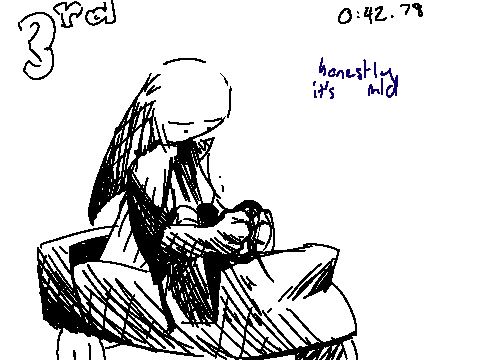 3rd
0:42.78
honestly
it's mid